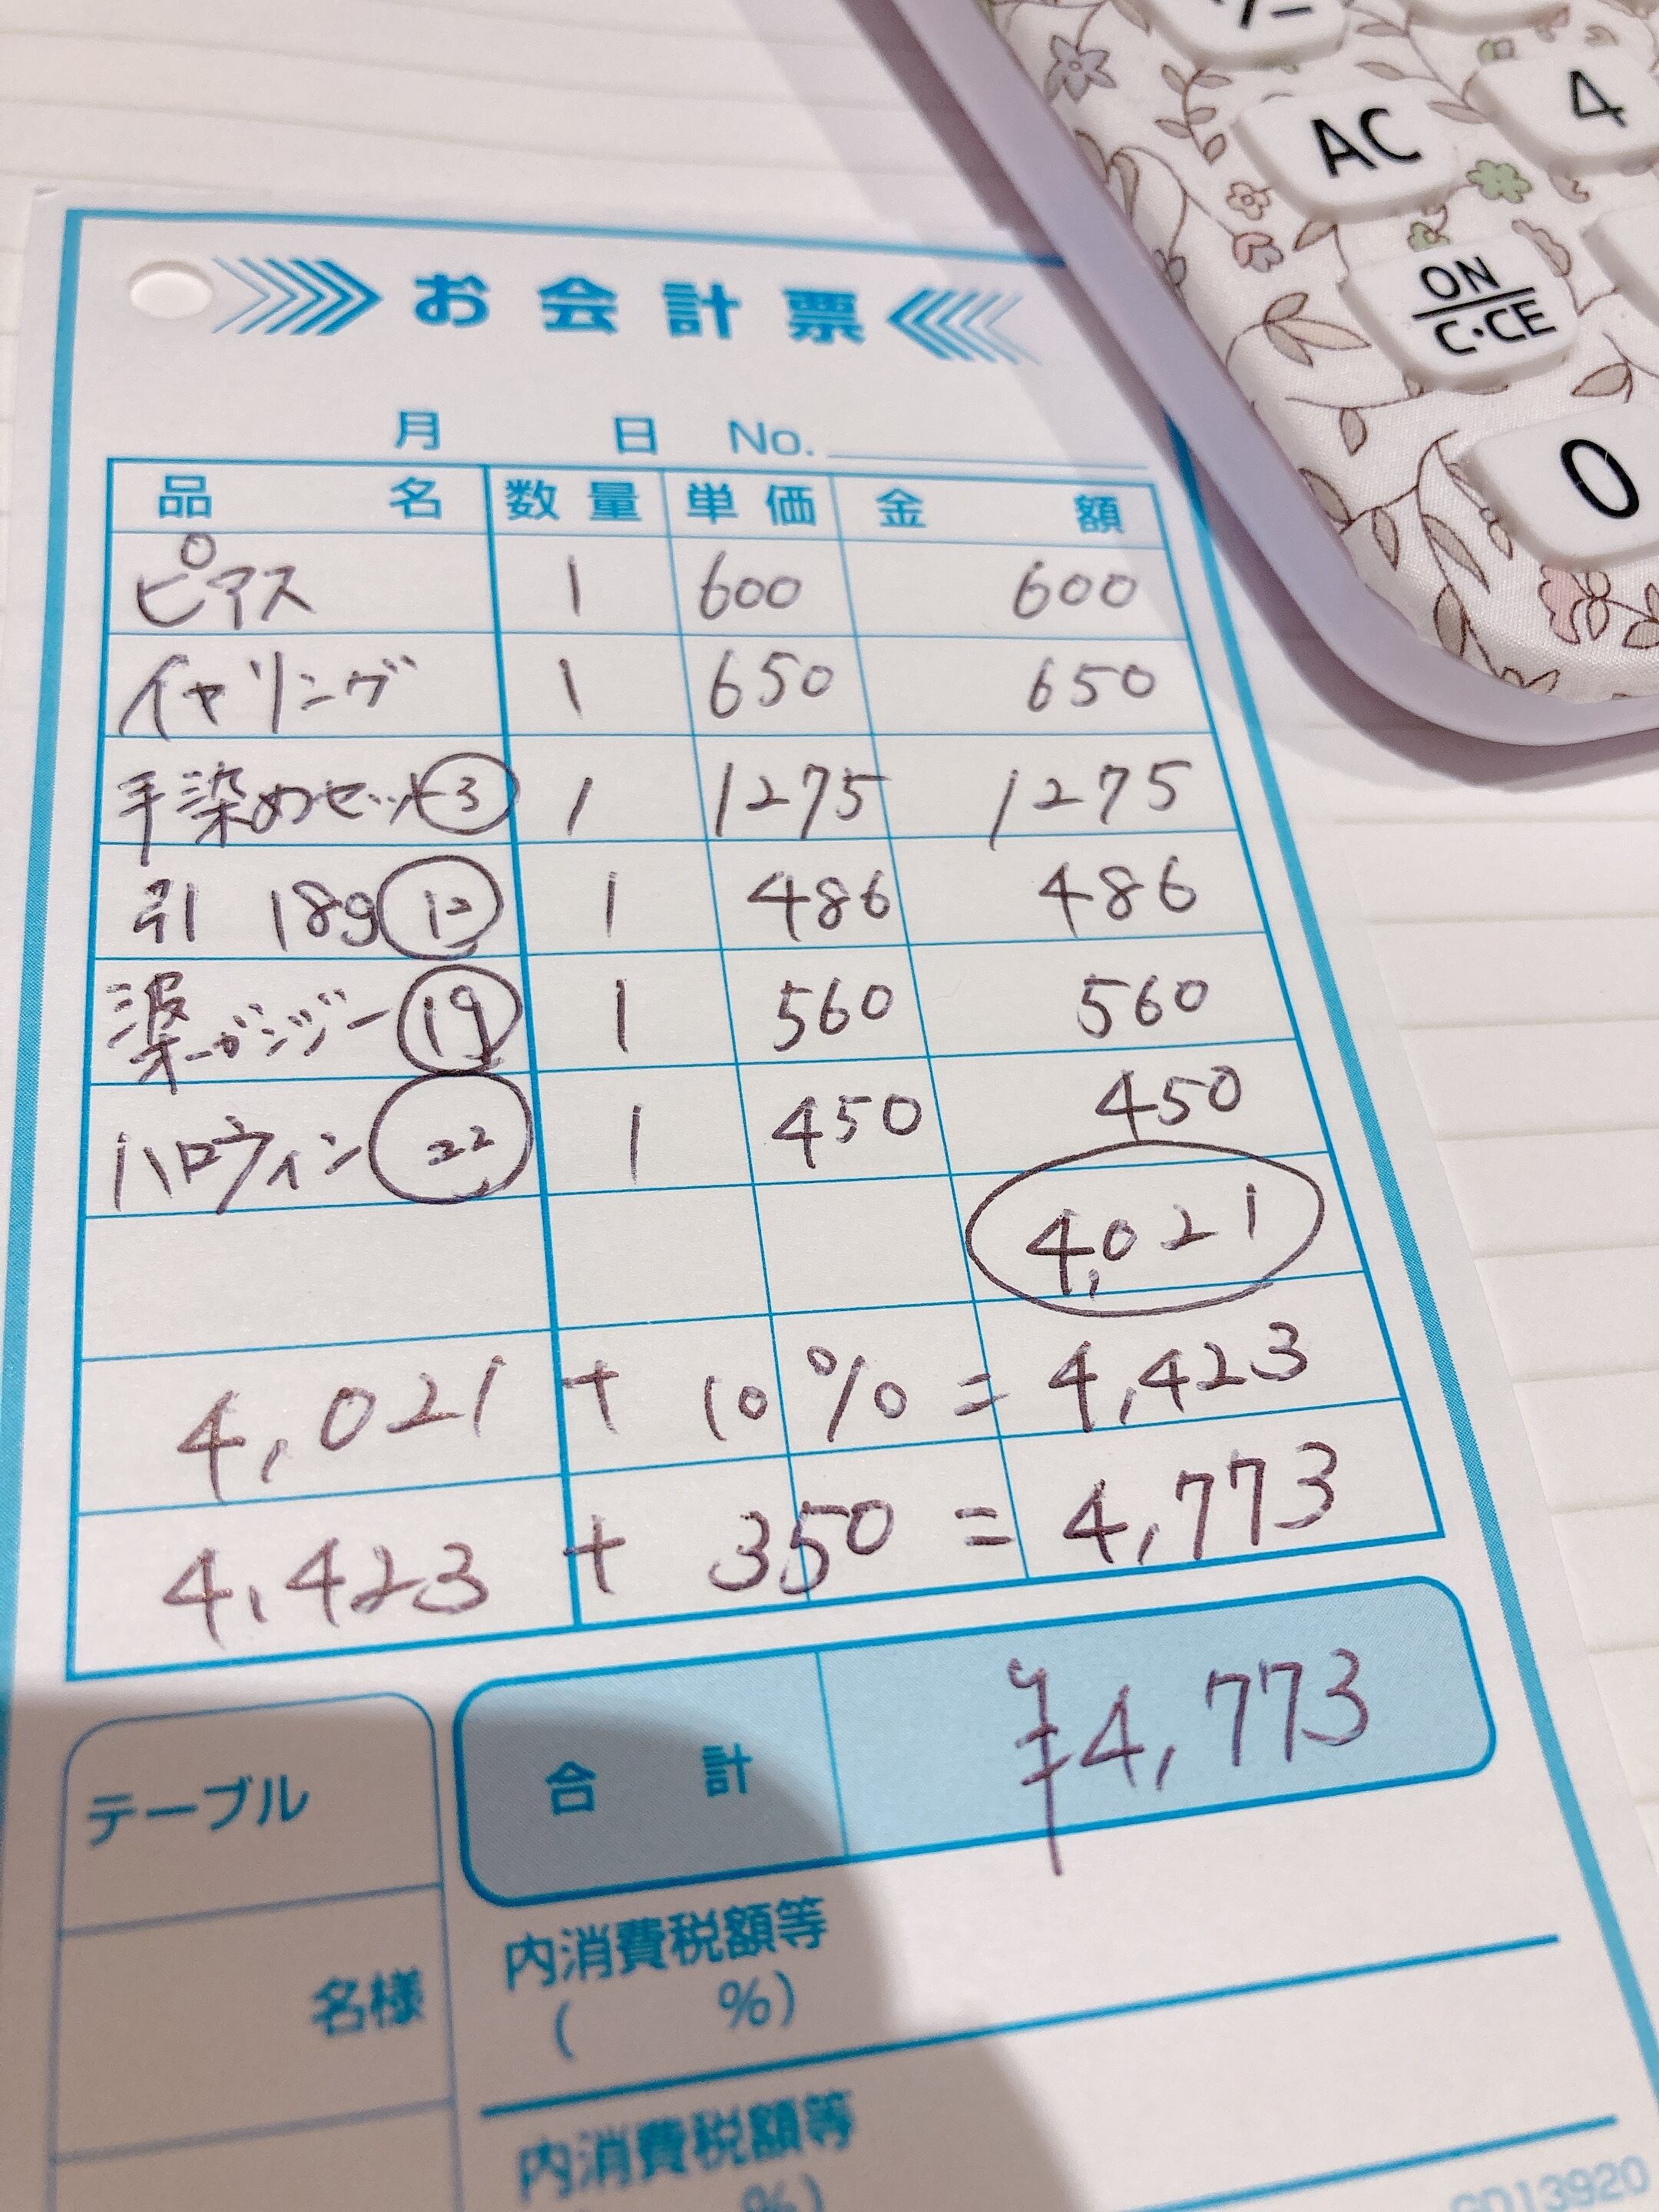 お会計票
月 日 No.
品名 数量 単価 金額
ピアス 1 600 600
イヤリング 1 650 650
手染めセット③ 1 1275 1275
引 18g⑫ 1 486 486
染ーガンジー⑲ 1 560 560
ハロウィン㉒ 1 450 450
4,021
4,021 + 10% = 4,423
4,423 + 350 = 4,773
合計 ¥4,773
テーブル
名様
内消費税額等
( %)
内消費税額等
%)
GD13920
+/-
AC 4
ON
C・CE
0